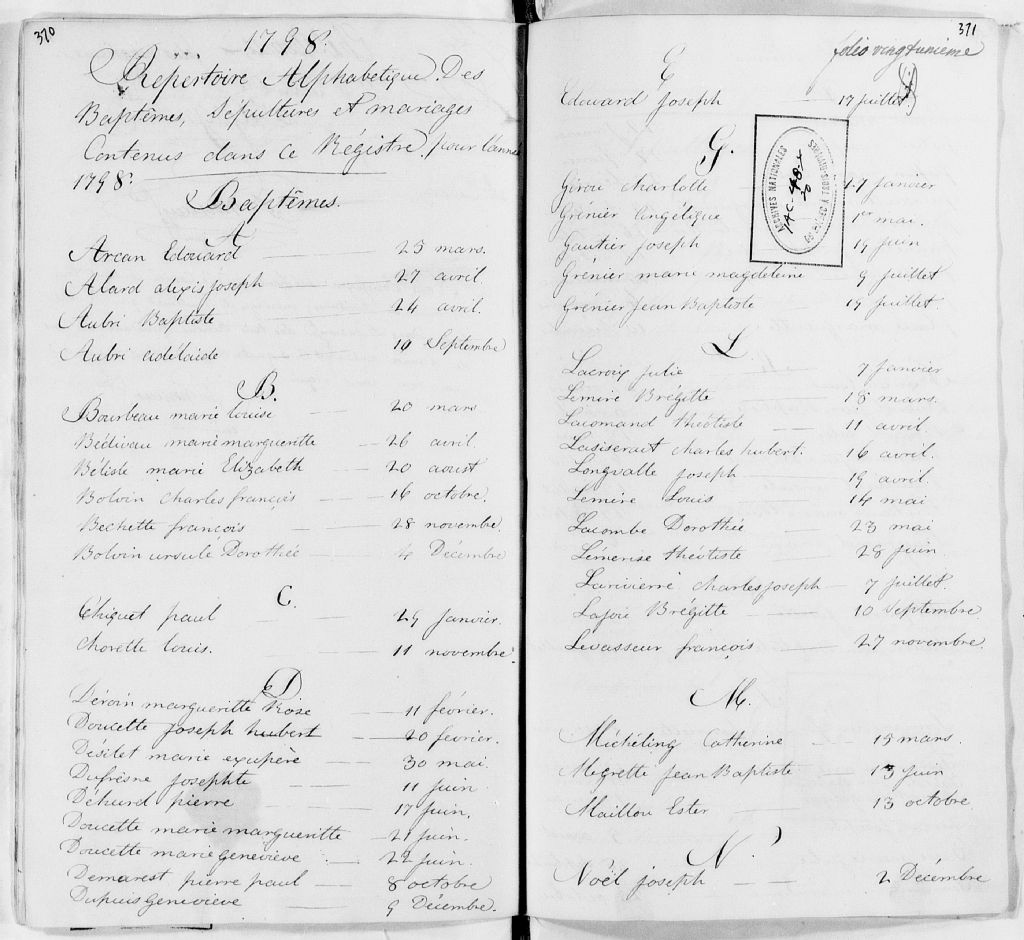 370
1798.
Répertoire Alphabetique Des
Baptêmes, Sépultures et mariages
Contenus dans ce Régistre pour l'année
1798.
Baptêmes.
A
Arcan Edouard 23 mars.
Alard alexis joseph 27 avril.
Aubri Baptiste 24 avril.
Aubri adélaide 10 Septembre
B.
Bourbeau marie louise 20 mars
Bédivau marie margueritte 26 avril.
Bélisle marie Elizabeth 20 aoust
Bolvin charles françois 16 octobre.
Bechette françois 28 novembre.
Bolvin ursule Dorothée 4 Décembre
C.
Chiquet paul 29 Janvier.
Chorette louis. 11 novembre.
D
Déroin margueritte Rose 11 février.
Doucette joseph hubert 20 février.
Désilet marie exupère 30 mai.
Dufresne josephte 11 juin
Déhurd pierre 17 juin.
Doucette marie margueritte 21 juin.
Doucette marie Geneviève 22 juin.
Demarest pierre paul 8 octobre
Dupuis Geneviève 9 Décembre.
371
folio vingtunième
E
Edouard Joseph 17 juillet.
G.
Girou charlotte 17 Janvier
Grénier angélique 1er mai.
Gautier joseph 19 juin
Grénier marie magdeleine 9 juillet
Grénier Jean Baptiste 19 juillet.
ARCHIVES NATIONALES
DU QUÉBEC À TROIS-RIVIÈRES
L.
Lacroix julie 7 janvier
Lemire Brégitte 18 mars.
Lacomand théotiste 11 avril.
Lasiserait charles hubert. 16 avril.
Longvalle joseph 19 avril.
Lemire Louis 14 mai
Lacombe Dorothée 28 mai
Lémerise théotiste 28 juin
Larivierre charles joseph 7 juillet.
Lajoie Brégitte 10 Septembre
Levasseur françois 27 novembre.
M.
Michéling Catherine 15 mars.
Megrette Jean Baptiste 13 juin
Maillou Ester 13 octobre
N.
Noël joseph 2 Décembre